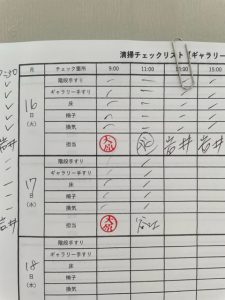 清掃チェックリスト ギャラリー
月 チェック箇所 9:00 11:00 13:00 15:00
階段手すり
ギャラリー手すり
16 床
日 椅子
(火) 換気
担当 岩井 岩井
階段手すり
ギャラリー手すり
17 床
日 椅子
(水) 換気
担当
階段手すり
ギャラリー手すり
18 床
日 椅子